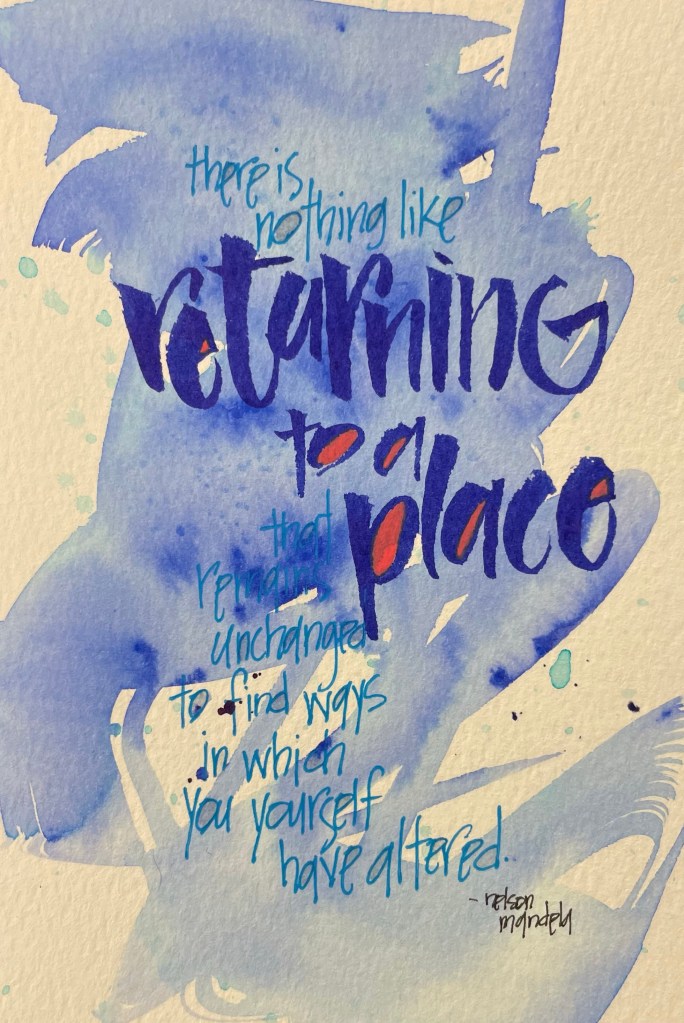 there is
nothing like
returning
to a
place
that
remains
unchanged
to find ways
in which
you yourself
have altered.
- nelson
mandela